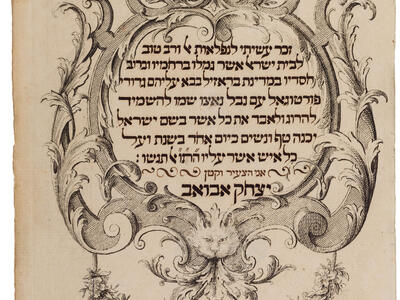 זכר עשיתי לנפלאות א֗ ורב טוב
לבית ישראל אשר גמלו ברחמיו וברוב
חסדיו במדינת בראזיל בבא עליהם גדודי
פורטוגאל עם נבל נאצו שמו להשמיד
להרוג ולאבד את כל אשר בשם ישראל
יכנה טף ונשים ביום אחד בשנת ועל
כל איש אשר עליו התו אל תגשו:
אני הצעיר וקטן
יצחק אבואב